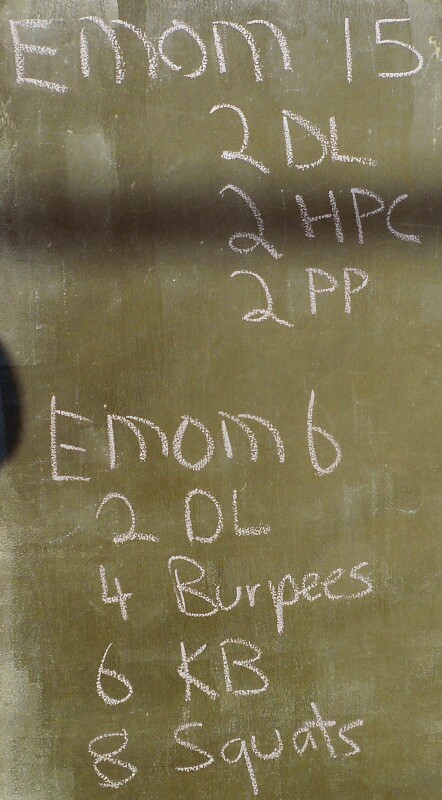 Emom 15
2 DL
2 HPC
2 PP
Emom 6
2 DL
4 Burpees
6 KB
8 Squats